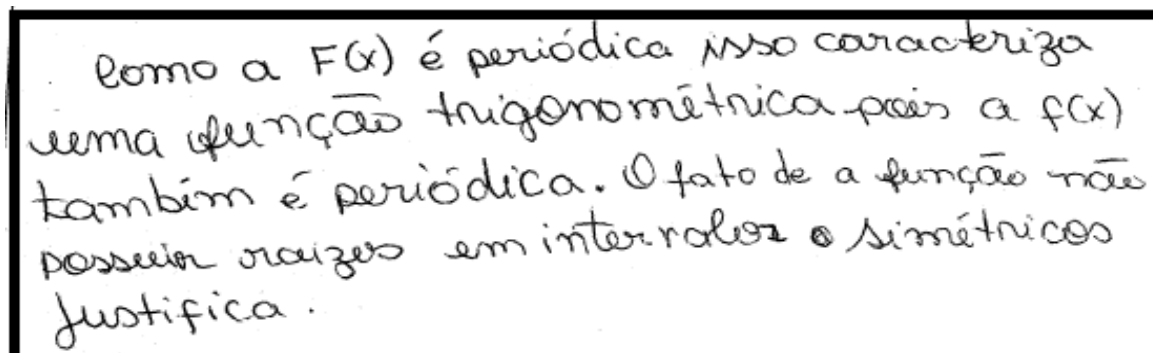 Como a F(x) é periódica isso caracteriza
uma função trigonométrica pois a f(x)
também é periódica. O fato de a função não
possuir raizes em intervalos simétricos
justifica.